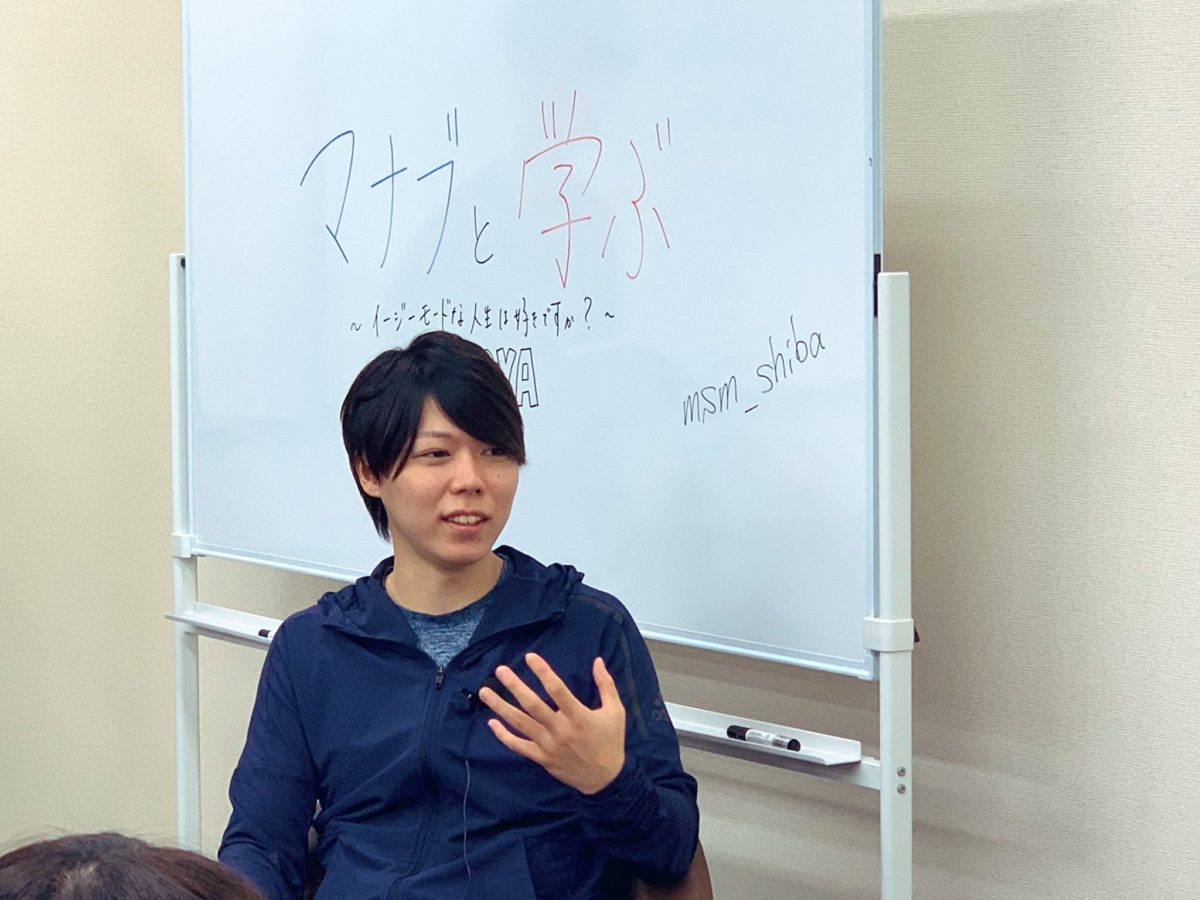 マナブと学ぶ
~イージーモードな人生は好きですか?~
YA
msm_shiba